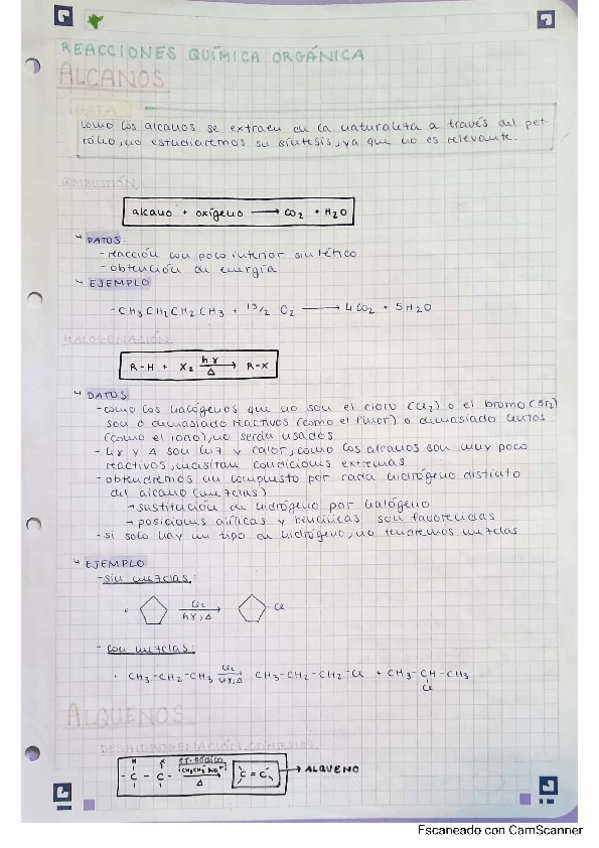 REACCIONES QUÍMICA ORGÁNICA
ALCANOS
NOTA
como los alcanos se extraen de la naturaleza a través del pet-
róleo, no estudiaremos su síntesis, ya que no es relevante.
COMBUSTIÓN
alcano + oxígeno → CO2 + H2O
DATOS:
- reacción con poco interior sintético
- obtención de energía
EJEMPLO
- CH3CH2CH2CH3 + 13/2 O2 → 4CO2 + 5H2O
HALOGENACIÓN
R-H + X2 hγ Δ → R-X
DATOS
- como los halógenos que no son el cloro (Cl2) o el bromo (Br2)
son o demasiado reactivos (como el flúor) o demasiado lentos
(como el iodo), no serán usados
- hγ y Δ son luz y calor, como los alcanos son muy poco
reactivos, necesitan condiciones extremas
- obtendremos un compuesto por cada hidrógeno distinto
del alcano (mezclas)
→ sustitución de hidrógeno por halógeno
→ posiciones alílicas y bencílicas son favorecidas
- si solo hay un tipo de hidrógeno, no tendremos mezclas
EJEMPLO
- sin mezclas:
Cl2 hγ, Δ → Cl
- con mezclas:
· CH3-CH2-CH3 Cl2 hγ,Δ → CH3-CH2-CH2-Cl + CH3-CH-CH3
Cl
ALQUENOS
-C-C- Δ → C=C → ALQUENO
Escaneado con CamScanner